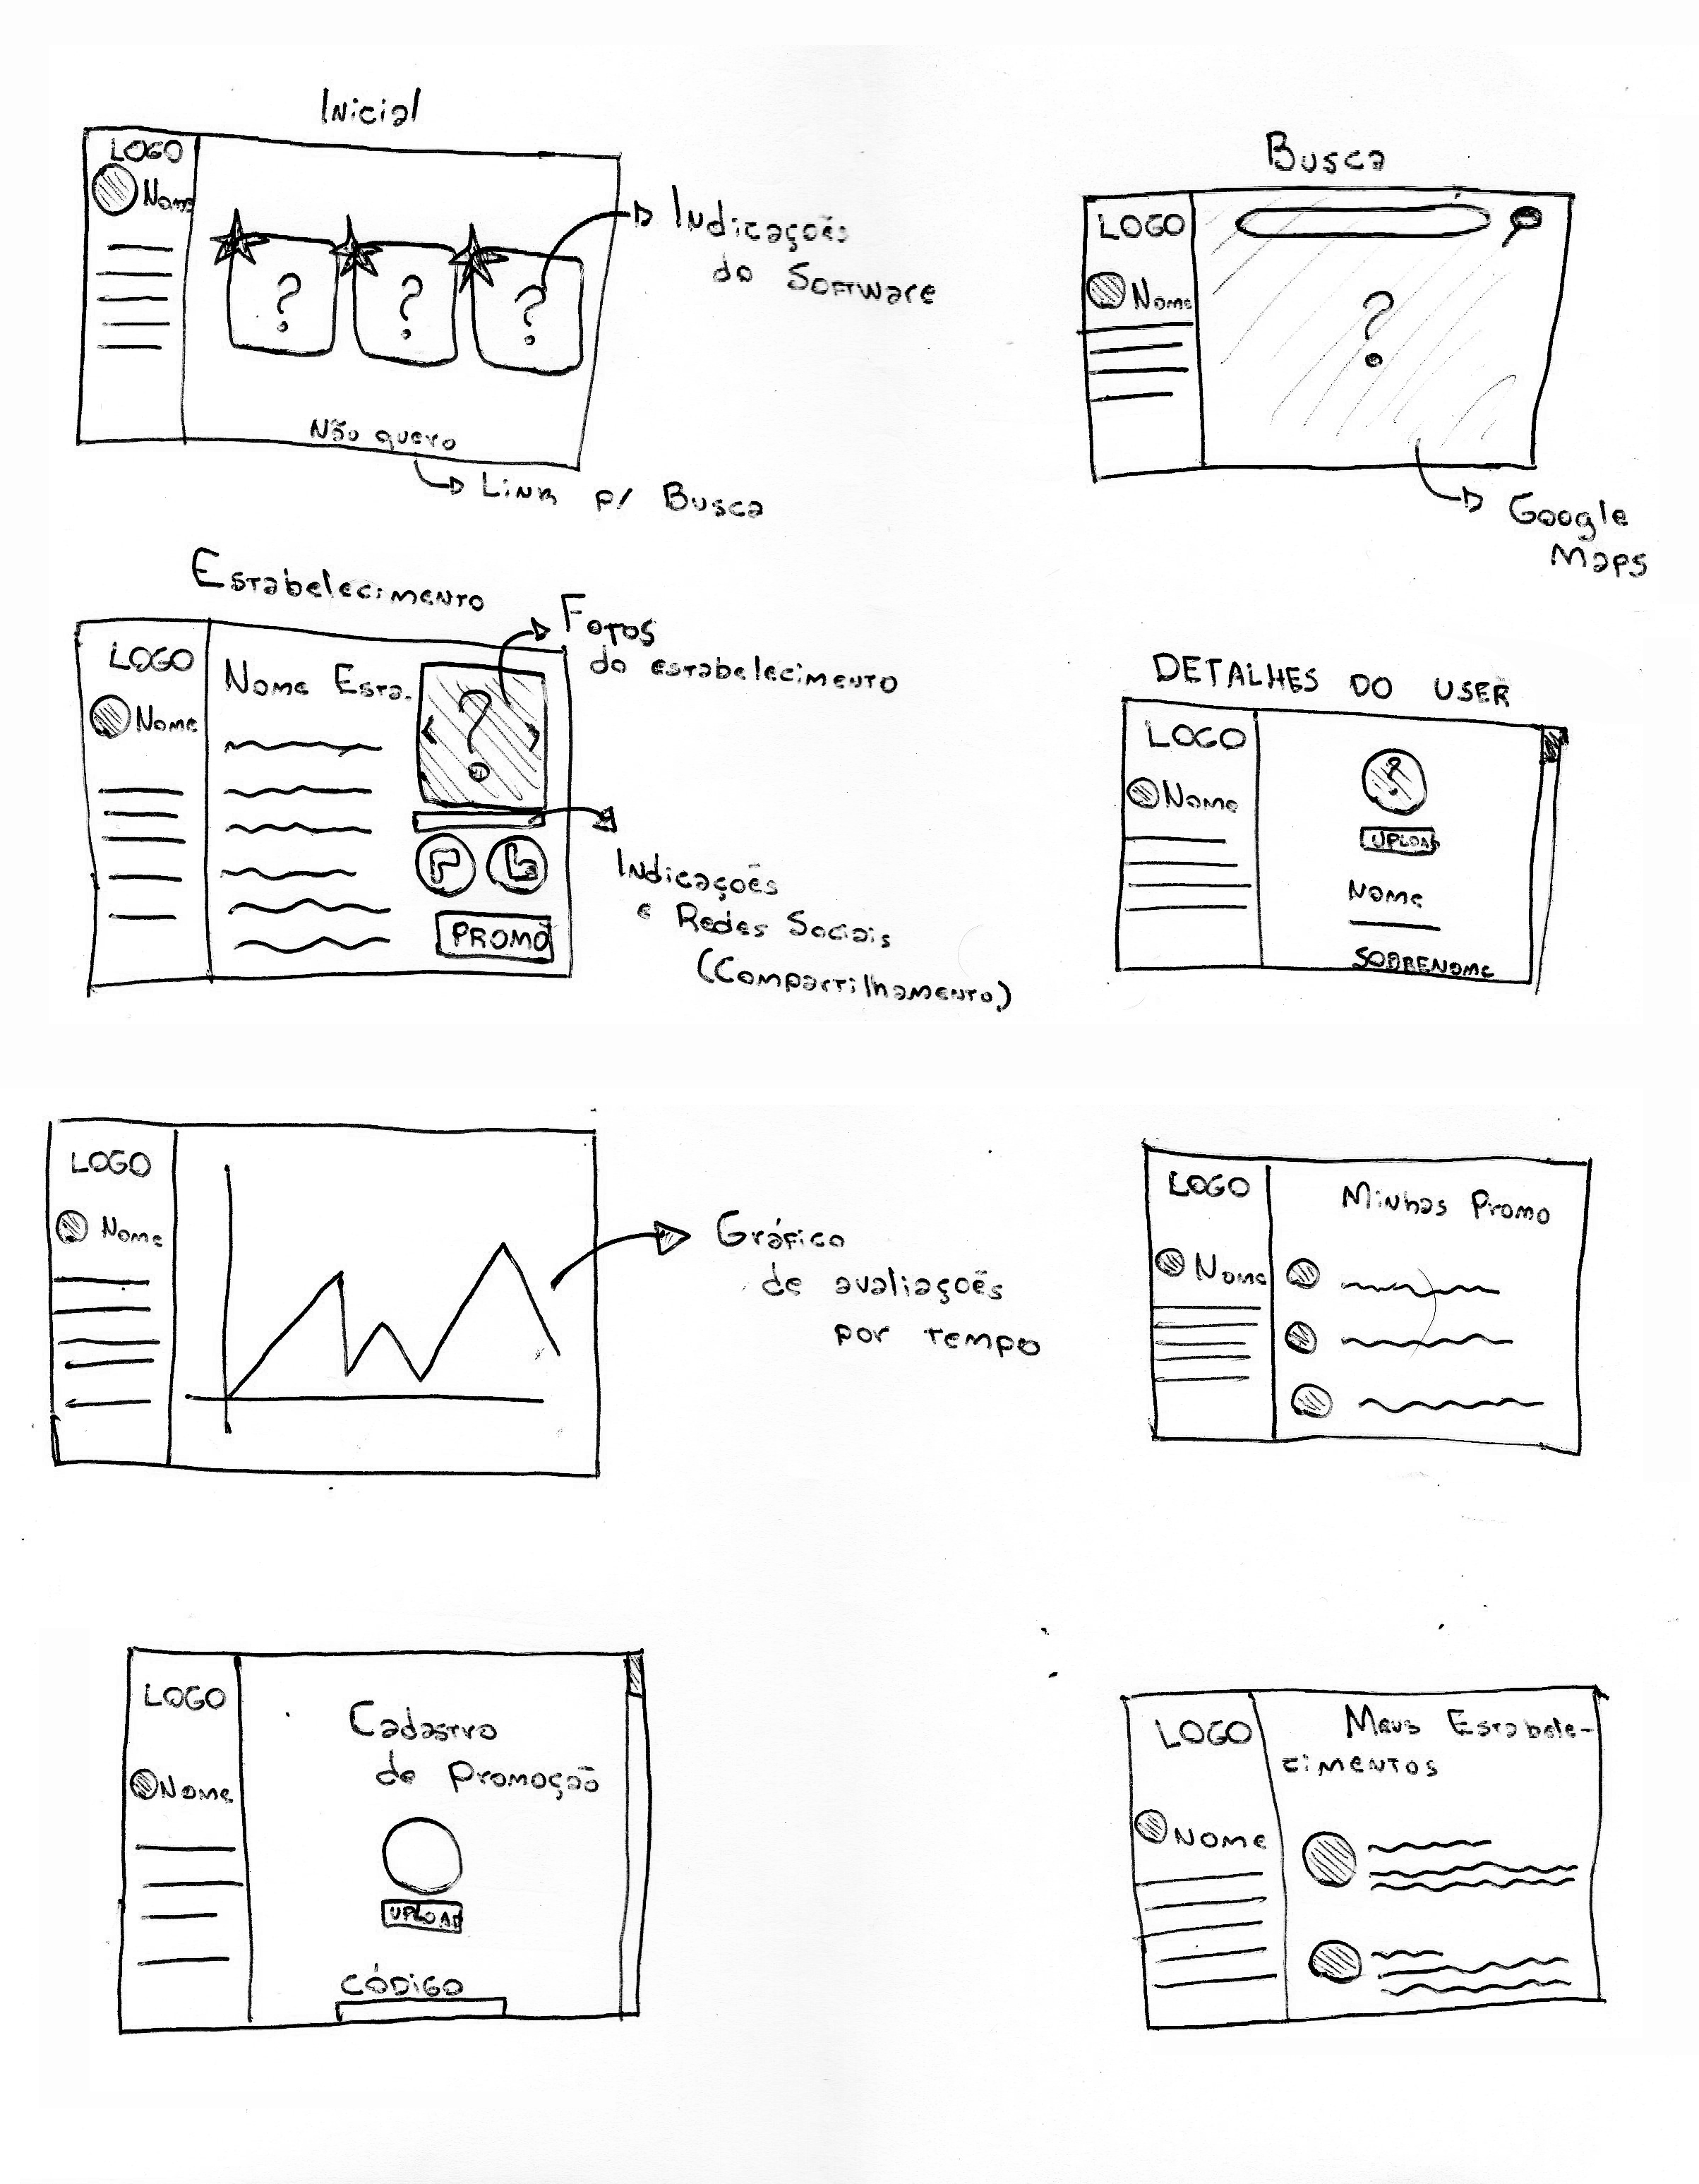 Inicial
LOGO
Nome
Não quero
Indicações
do Software
Link p/ Busca
Busca
LOGO
Nome
Google
Maps
Estabelecimento
LOGO
Nome
Nome Esta.
PROMO
Fotos
do estabelecimento
Indicações
e Redes Sociais
(Compartilhamento)
DETALHES DO USER
LOGO
Nome
UPLOAD
Nome
SOBRENOME
LOGO
Nome
Gráfico
de avaliações
por tempo
LOGO
Nome
Minhas Promo
LOGO
Nome
Cadastro
de Promoção
UPLOAD
CÓDIGO
LOGO
Nome
Meus Estabele-
cimentos